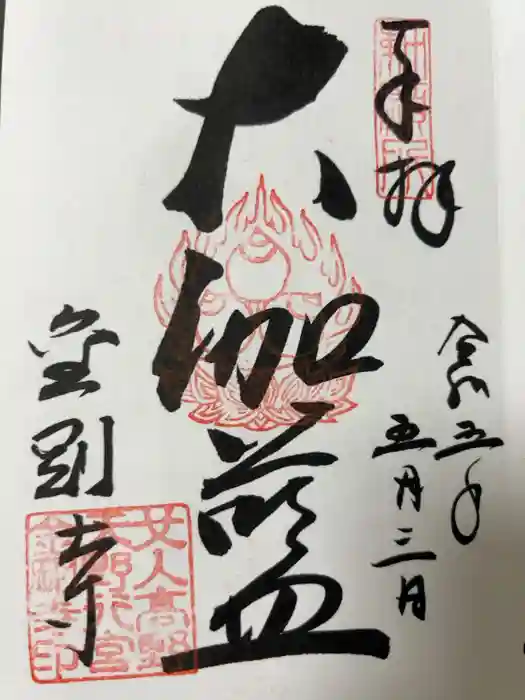 奉拝
令和五年
五月三日
大伽藍
金剛寺
女人高野
天野行宮
金剛寺印